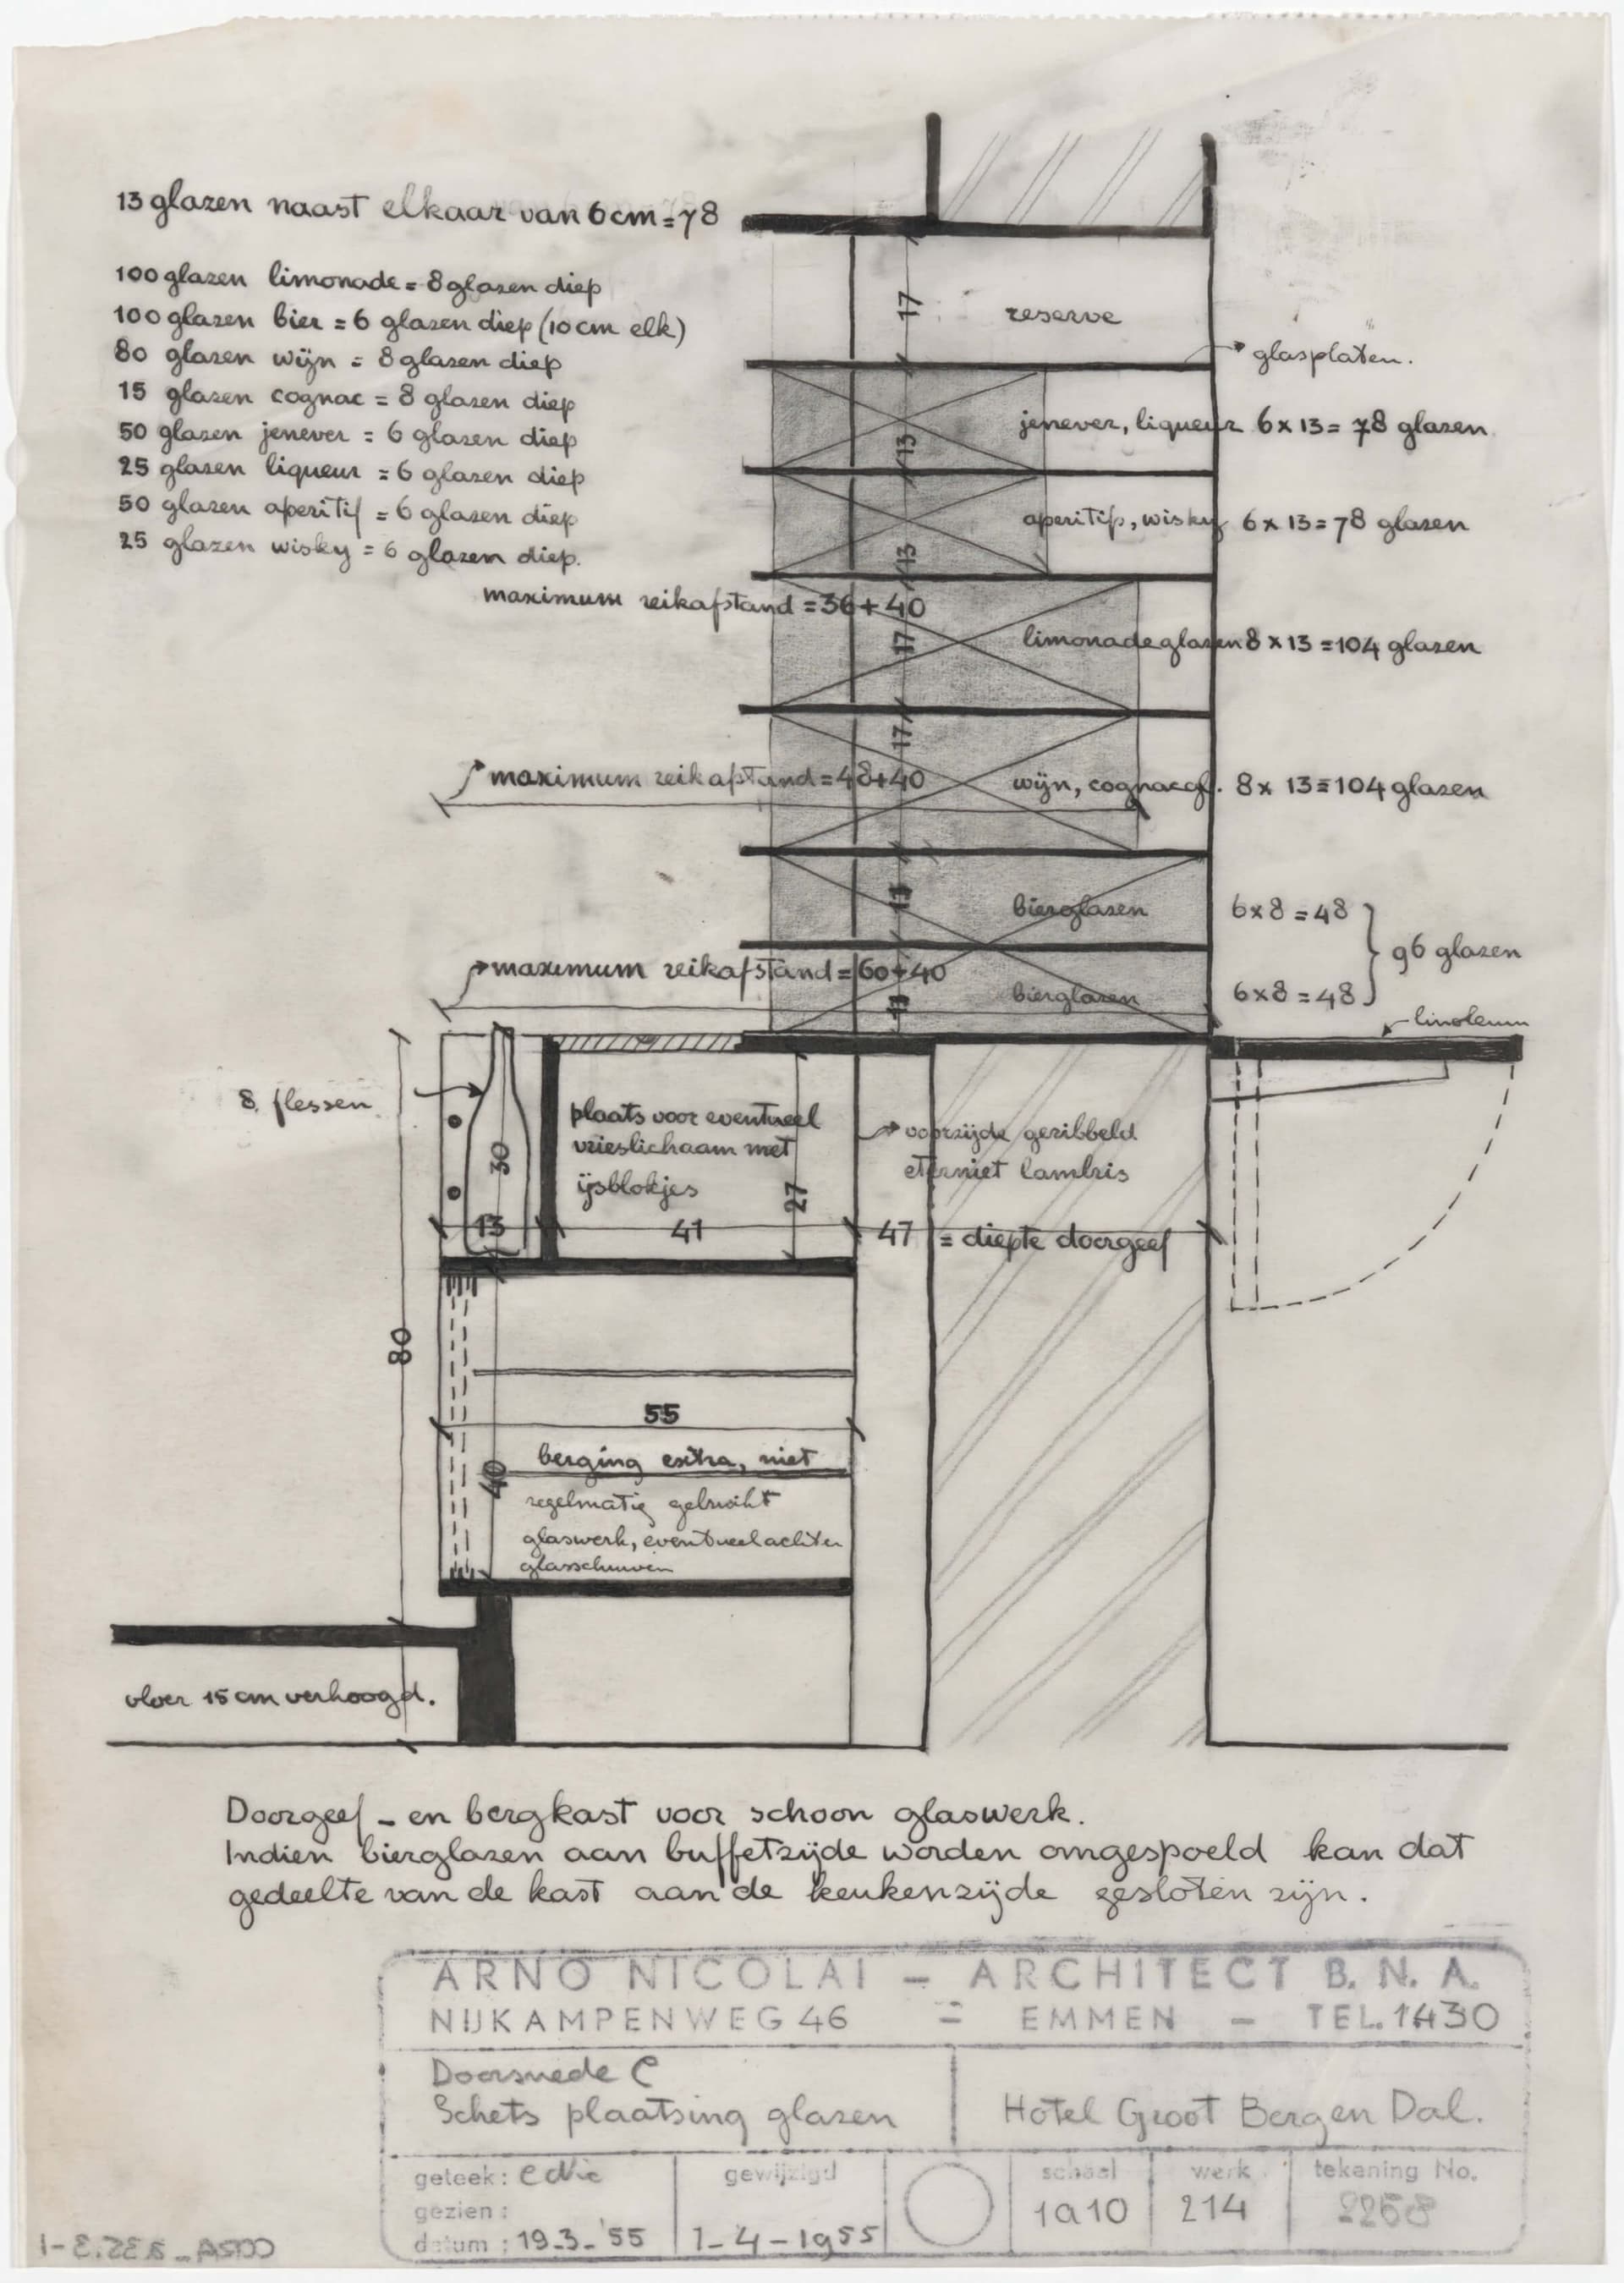 13 glazen naast elkaar van 6 cm = 78
100 glazen limonade = 8 glazen diep
100 glazen bier = 6 glazen diep (10 cm elk)
80 glazen wijn = 8 glazen diep
15 glazen cognac = 8 glazen diep
50 glazen jenever = 6 glazen diep
25 glazen liqueur = 6 glazen diep
50 glazen aperitif = 6 glazen diep
25 glazen wisky = 6 glazen diep.
17
reserve
glasplaten.
13
jenever, liqueur 6 x 13 = 78 glazen
13
aperitif, wisky 6 x 13 = 78 glazen
maximum reikafstand = 36 + 40
17
limonadeglazen 8 x 13 = 104 glazen
17
maximum reikafstand = 48 + 40
wijn, cognacgl. 8 x 13 = 104 glazen
bierglazen 6 x 8 = 48
96 glazen
maximum reikafstand = 60 + 40
bierglazen 6 x 8 = 48
linoleum
8 flessen
30
plaats voor eventueel
vrieslichaam met
ijsblokjes
27
voorzijde geribbeld
eterniet lambris
13
41
47 = diepte doorgeef
80
55
40
berging extra, niet
regelmatig gebruikt
glaswerk, eventueel achter
glasschuiven
vloer 15 cm verhoogd.
Doorgeef - en bergkast voor schoon glaswerk.
Indien bierglazen aan buffetzijde worden omgespoeld kan dat
gedeelte van de kast aan de keukenzijde gesloten zijn.
ARNO NICOLAI – ARCHITECT B. N. A.
NIJKAMPENWEG 46 = EMMEN – TEL. 1430
Doorsnede C
Schets plaatsing glazen
Hotel Groot Berg en Dal.
geteek:
gewijzigd
schaal
werk
tekening No.
gezien :
1 a 10
214
2258
datum : 19-3-'55
1-4-1955